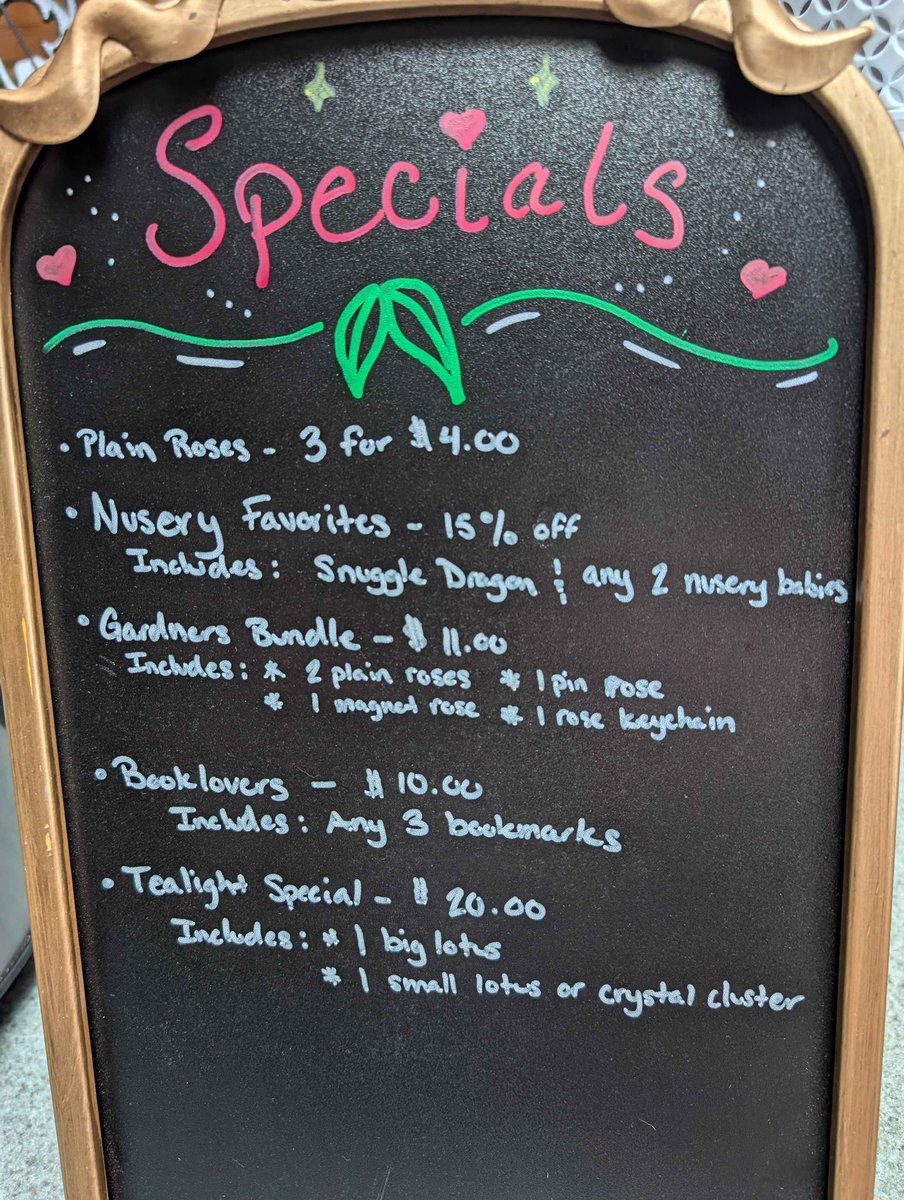 Specials
• Plain Roses - 3 for $4.00
• Nusery Favorites - 15% off
Includes: Snuggle Dragon & any 2 nusery babies
• Gardners Bundle - $11.00
Includes: * 2 plain roses * 1 pin rose
* 1 magnet rose * 1 rose keychain
• Booklovers - $10.00
Includes: Any 3 bookmarks
• Tealight Special - $20.00
Includes: * 1 big lotus
* 1 small lotus or crystal cluster